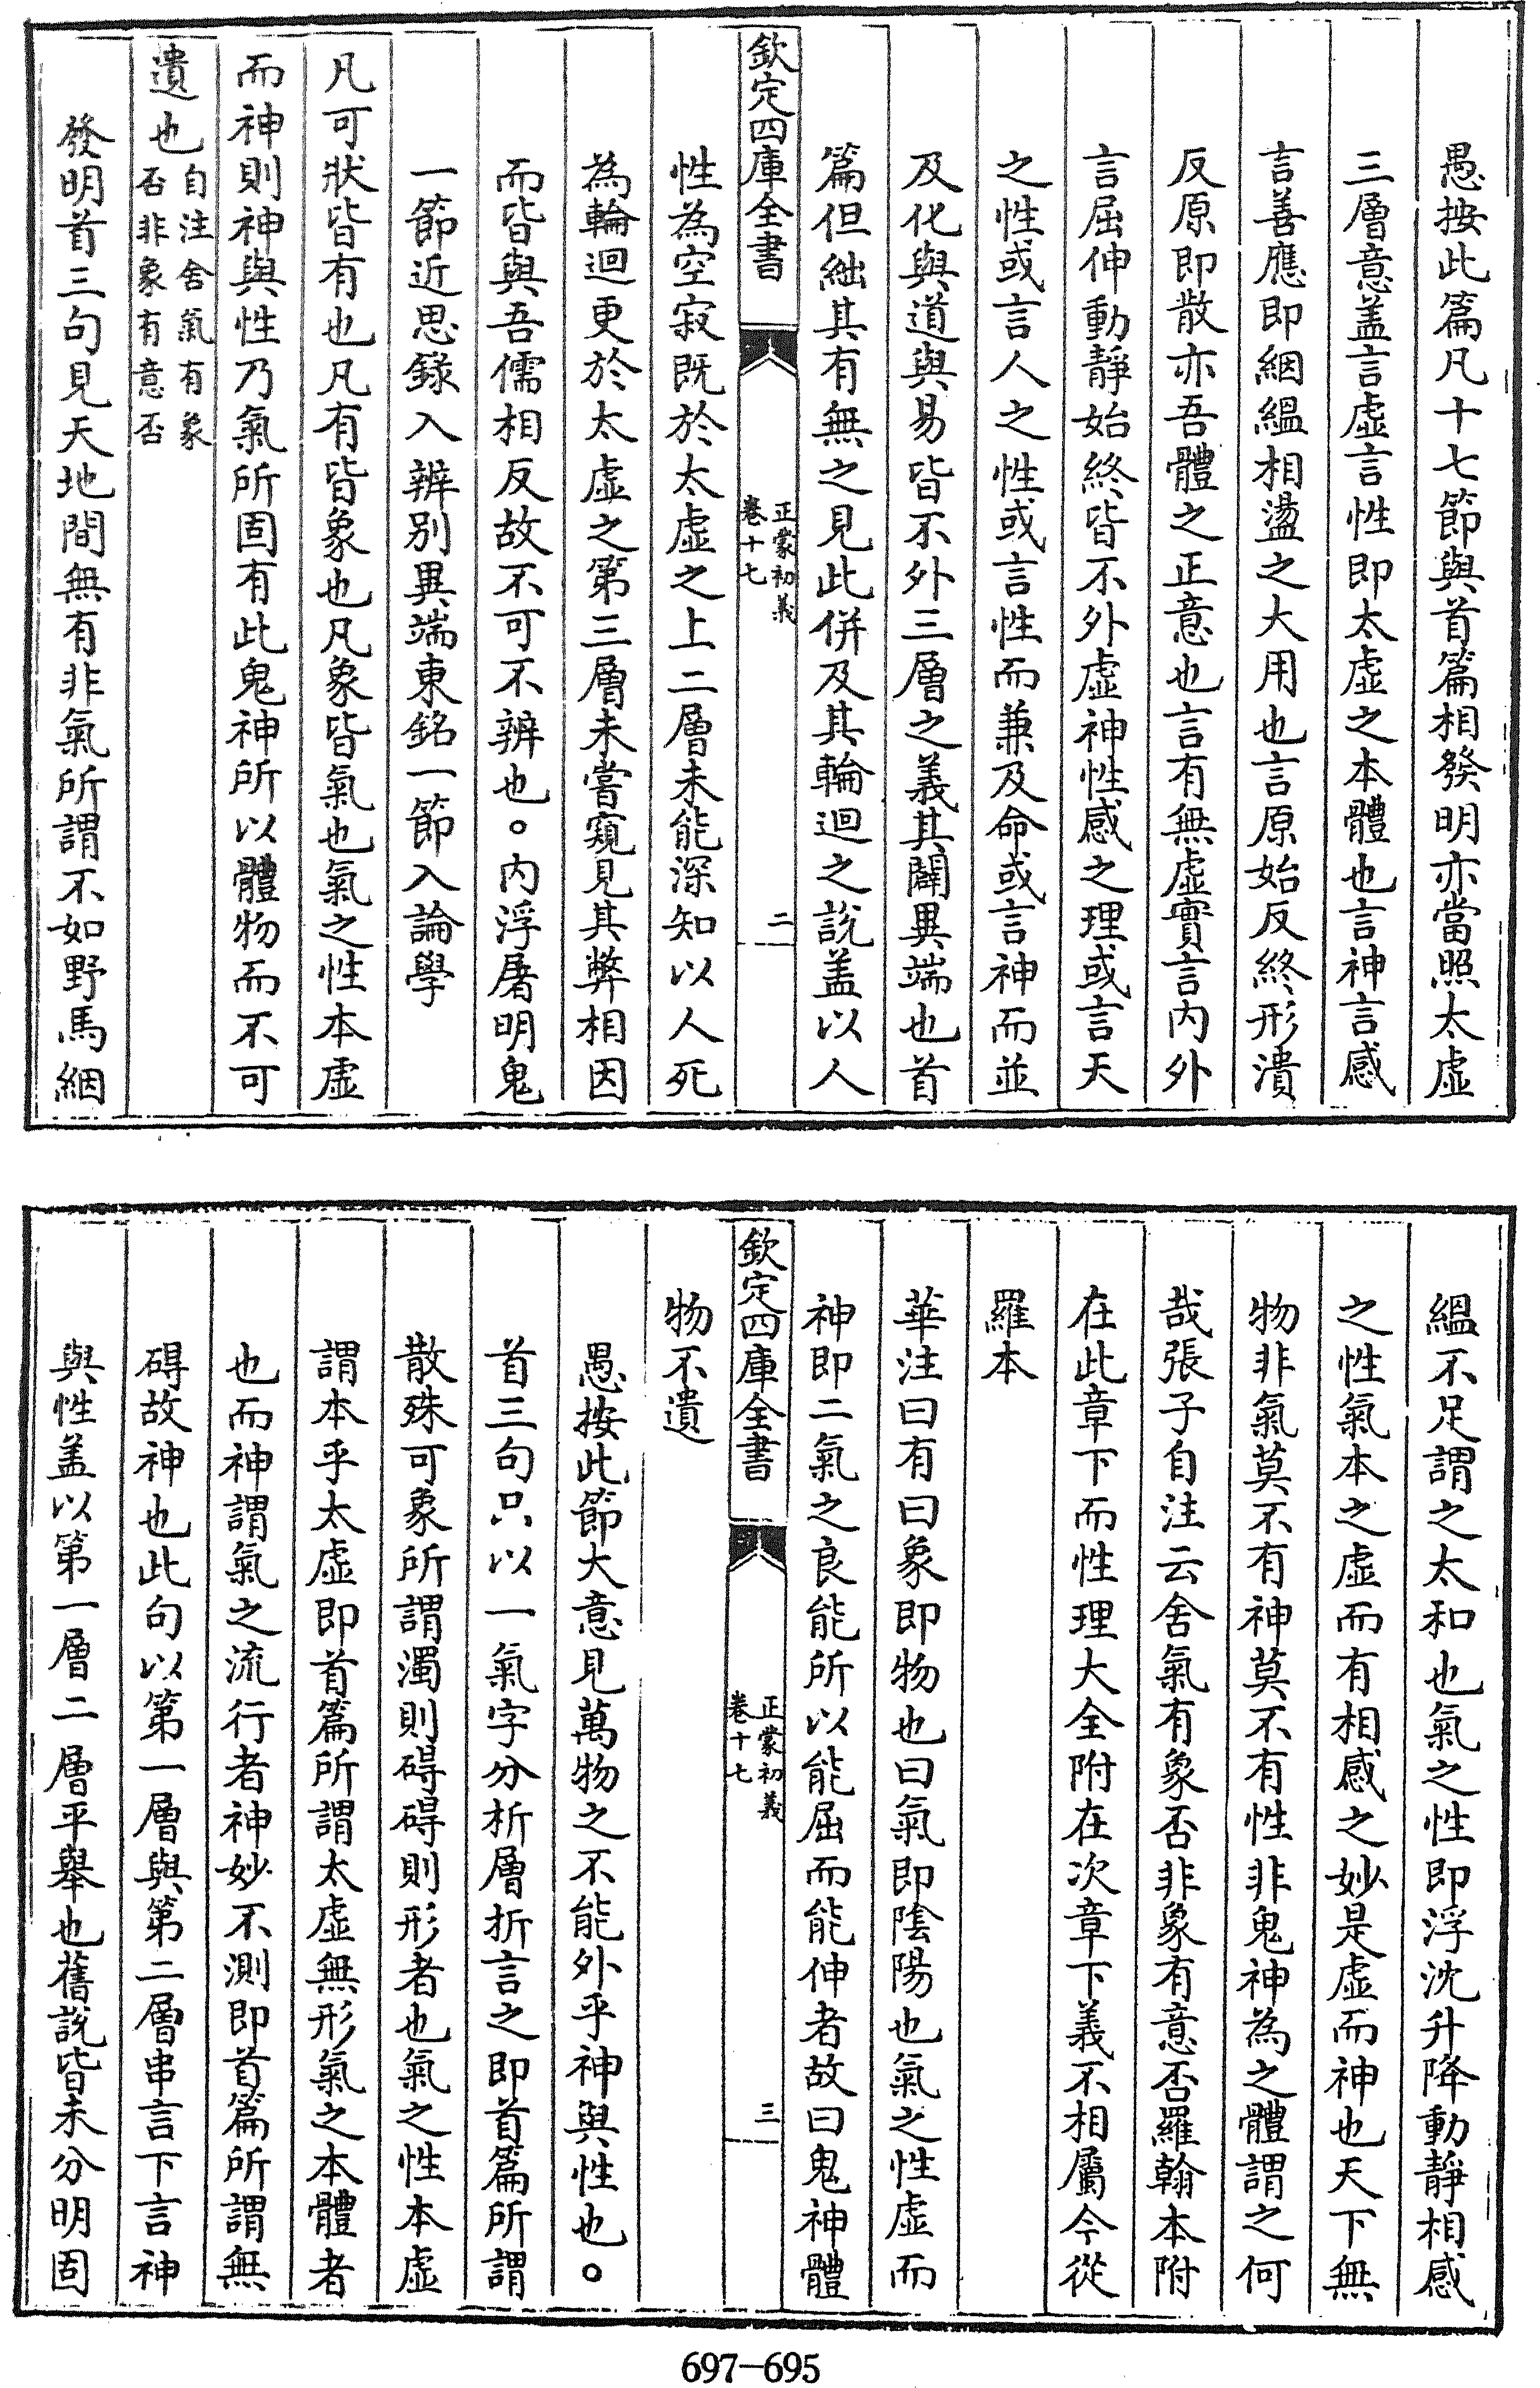 愚按此篇凡十七節與首篇相發明亦當照太虛
三層意盖言虛言性即太虛之本體也言神言感
言善應即絪緼相盪之大用也言原始反終形潰
反原即散亦吾體之正意也言有無虛實言內外
言屈伸動靜始終皆不外虛神性感之理或言天
之性或言人之性或言性而兼及命或言神而並
及化與道與易皆不外三層之義其闢異端也首
篇但絀其有無之見此併及其輪迴之說盖以人
欽定四庫全書
正蒙初義
卷十七
二
性為空寂既於太虛之上二層未能深知以人死
為輪迴更於太虛之第三層未嘗窺見其弊相因
而皆與吾儒相反故不可不辨也。內浮屠明鬼
一節近思錄入辨別異端東銘一節入論學
凡可狀皆有也凡有皆象也凡象皆氣也氣之性本虛
而神則神與性乃氣所固有此鬼神所以體物而不可
遺也自注舍氣有象
否非象有意否
發明首三句見天地間無有非氣所謂不如野馬絪
緼不足謂之太和也氣之性即浮沈升降動靜相感
之性氣本之虛而有相感之妙是虛而神也天下無
物非氣莫不有神莫不有性非鬼神為之體謂之何
哉張子自注云舍氣有象否非象有意否羅翰本附
在此章下而性理大全附在次章下義不相屬今從
羅本
華注曰有曰象即物也曰氣即陰陽也氣之性虛而
神即二氣之良能所以能屈而能伸者故曰鬼神體
欽定四庫全書
正蒙初義
卷十七
三
物不遺
愚按此節大意見萬物之不能外乎神與性也。
首三句只以一氣字分析層折言之即首篇所謂
散殊可象所謂濁則碍碍則形者也氣之性本虛
謂本乎太虛即首篇所謂太虛無形氣之本體者
也而神謂氣之流行者神妙不測即首篇所謂無
碍故神也此句以第一層與第二層串言下言神
與性盖以第一層二層平舉也舊說皆未分明固
697-695